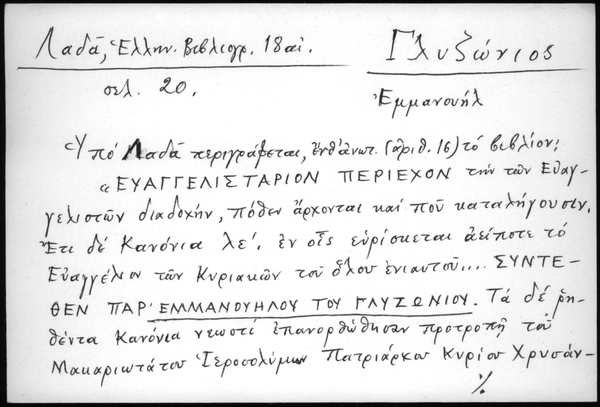 Λαδᾶ, Ἑλλην. Βιβλιογρ. 18 αἰ.
Γλυζώνιος
σελ. 20.
Ἐμμανουήλ
Ὑπό Λαδᾶ περιγράφεται, ἔνθ' ἀνωτ. (ἀριθ. 16) τό βιβλίον;
« ΕΥΑΓΓΕΛΙΣΤΑΡΙΟΝ ΠΕΡΙΕΧΟΝ τήν τῶν Εὐαγ-
γελιστῶν διαδοχήν, πόθεν ἄρχονται καί ποῦ καταλήγουσιν.
Ἔτι δέ Κανόνια λε'. ἐν οἷς εὑρίσκεται ἀείποτε τό
Εὐαγγέλιον τῶν Κυριακῶν τοῦ ὅλου ἐνιαυτοῦ.... ΣΥΝΤΕ-
ΘΕΝ ΠΑΡ' ΕΜΜΑΝΟΥΗΛΟΥ ΤΟΥ ΓΛΥΖΩΝΙΟΥ. Τά δέ ῥη-
θέντα Κανόνια νεωστί ἐπανορθώθησαν προτροπῇ τοῦ
Μακαριωτάτου Ἱεροσολύμων Πατριάρχου Κυρίου Χρυσάν-
%